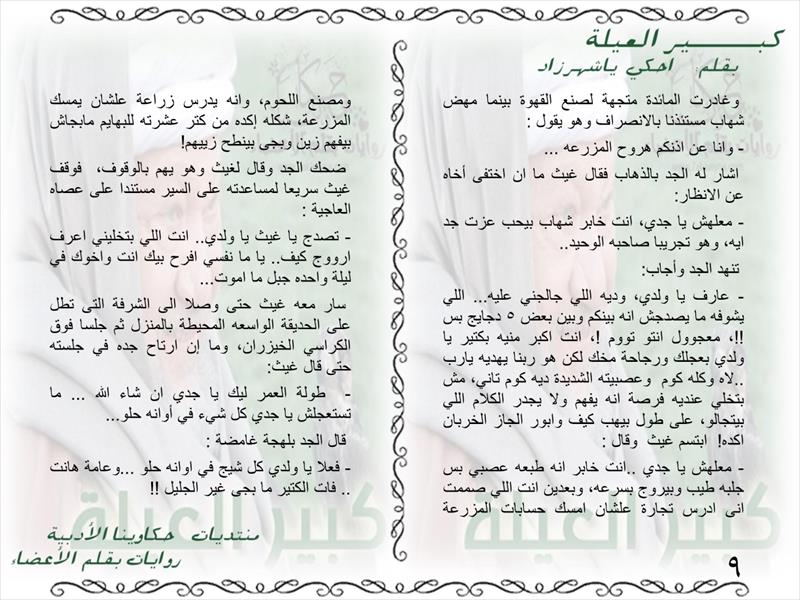 كبير العيلة
بقلم احكي ياشهرزاد
وغادرت المائدة متجهة لصنع القهوة بينما مهض
شهاب مستئذنا بالانصراف وهو يقول :
- وانا عن اذنكم هروح المزرعه ...
اشار له الجد بالذهاب فقال غيث ما ان اختفى أخاه
عن الانظار:
- معلهش يا جدي، انت خابر شهاب بيحب عزت جد
ايه، وهو تجريبا صاحبه الوحيد..
تنهد الجد وأجاب:
- عارف يا ولدي، وديه اللي جالجني عليه... اللي
يشوفه ما يصدجش انه بينكم وبين بعض ٥ دجايج بس
!!، معجوول انتو تووم !، انت اكبر منيه بكتير يا
ولدي بعجلك ورجاحة مخك لكن هو ربنا يهديه يارب
..لاه وكله كوم وعصبيته الشديدة ديه كوم تاني، مش
بتخلي عنديه فرصة انه يفهم ولا يجدر الكلام اللي
بيتجالو، على طول بيهب كيف وابور الجاز الخربان
اكده! ابتسم غيث وقال :
- معلهش يا جدي ..انت خابر انه طبعه عصبي بس
جلبه طيب وبيروج بسرعه، وبعدين انت اللي صممت
انى ادرس تجارة علشان امسك حسابات المزرعة
ومصنع اللحوم، وانه يدرس زراعة علشان يمسك
المزرعة، شكله إكده من كتر عشرته للبهايم مابجاش
بيفهم زين وبجى بينطح زييهم!
ضحك الجد وقال لغيث وهو يهم بالوقوف، فوقف
غيث سريعا لمساعدته على السير مستندا على عصاه
العاجية :
- تصدج يا غيث يا ولدي.. انت اللي بتخليني اعرف
ارووج كيف.. يا ما نفسي افرح بيك انت واخوك في
ليلة واحده جبل ما اموت...
سار معه غيث حتى وصلا الى الشرفة التى تطل
على الحديقة الواسعه المحيطة بالمنزل ثم جلسا فوق
الكراسي الخيزران، وما إن ارتاح جده في جلسته
حتى قال غيث:
- طولة العمر ليك يا جدي ان شاء الله ... ما
تستعجلش يا جدي كل شيء في أوانه حلو...
قال الجد بلهجة غامضة :
- فعلا يا ولدي كل شيج في اوانه حلو ...وعامة هانت
.. فات الكتير ما بجى غير الجليل !!
كبير العيلة
كبير العيلة
منتديات حكاوينا الأدبية
روايات بقلم الأعضاء
٩